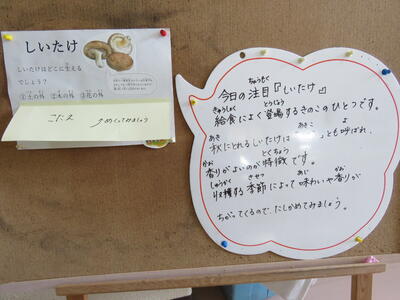 しいたけ
しいたけはどこに生える
でしょう？
①土の外 ②木の外 ③花の外
こたえ
めくってみましょう
今日の注目『しいたけ』
給食によく登場するきのこのひとつです。
秋にとれるしいたけは「　」とも呼ばれ、
香りがよいのが特徴です。
収穫する季節によって味わいや香りが
ちがってくるので、たしかめてみましょう。